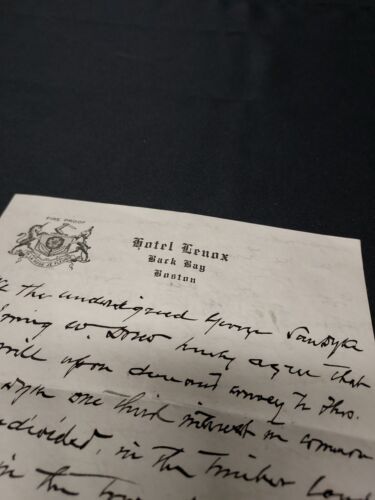 FIRE PROOF
Hotel Lenox
Back Bay
Boston
the undersigned George Van Dyke
Irving W. hereby agree that
will upon demand convey to Thos.
Dyke one third interest in common
undivided, in the timber
in the